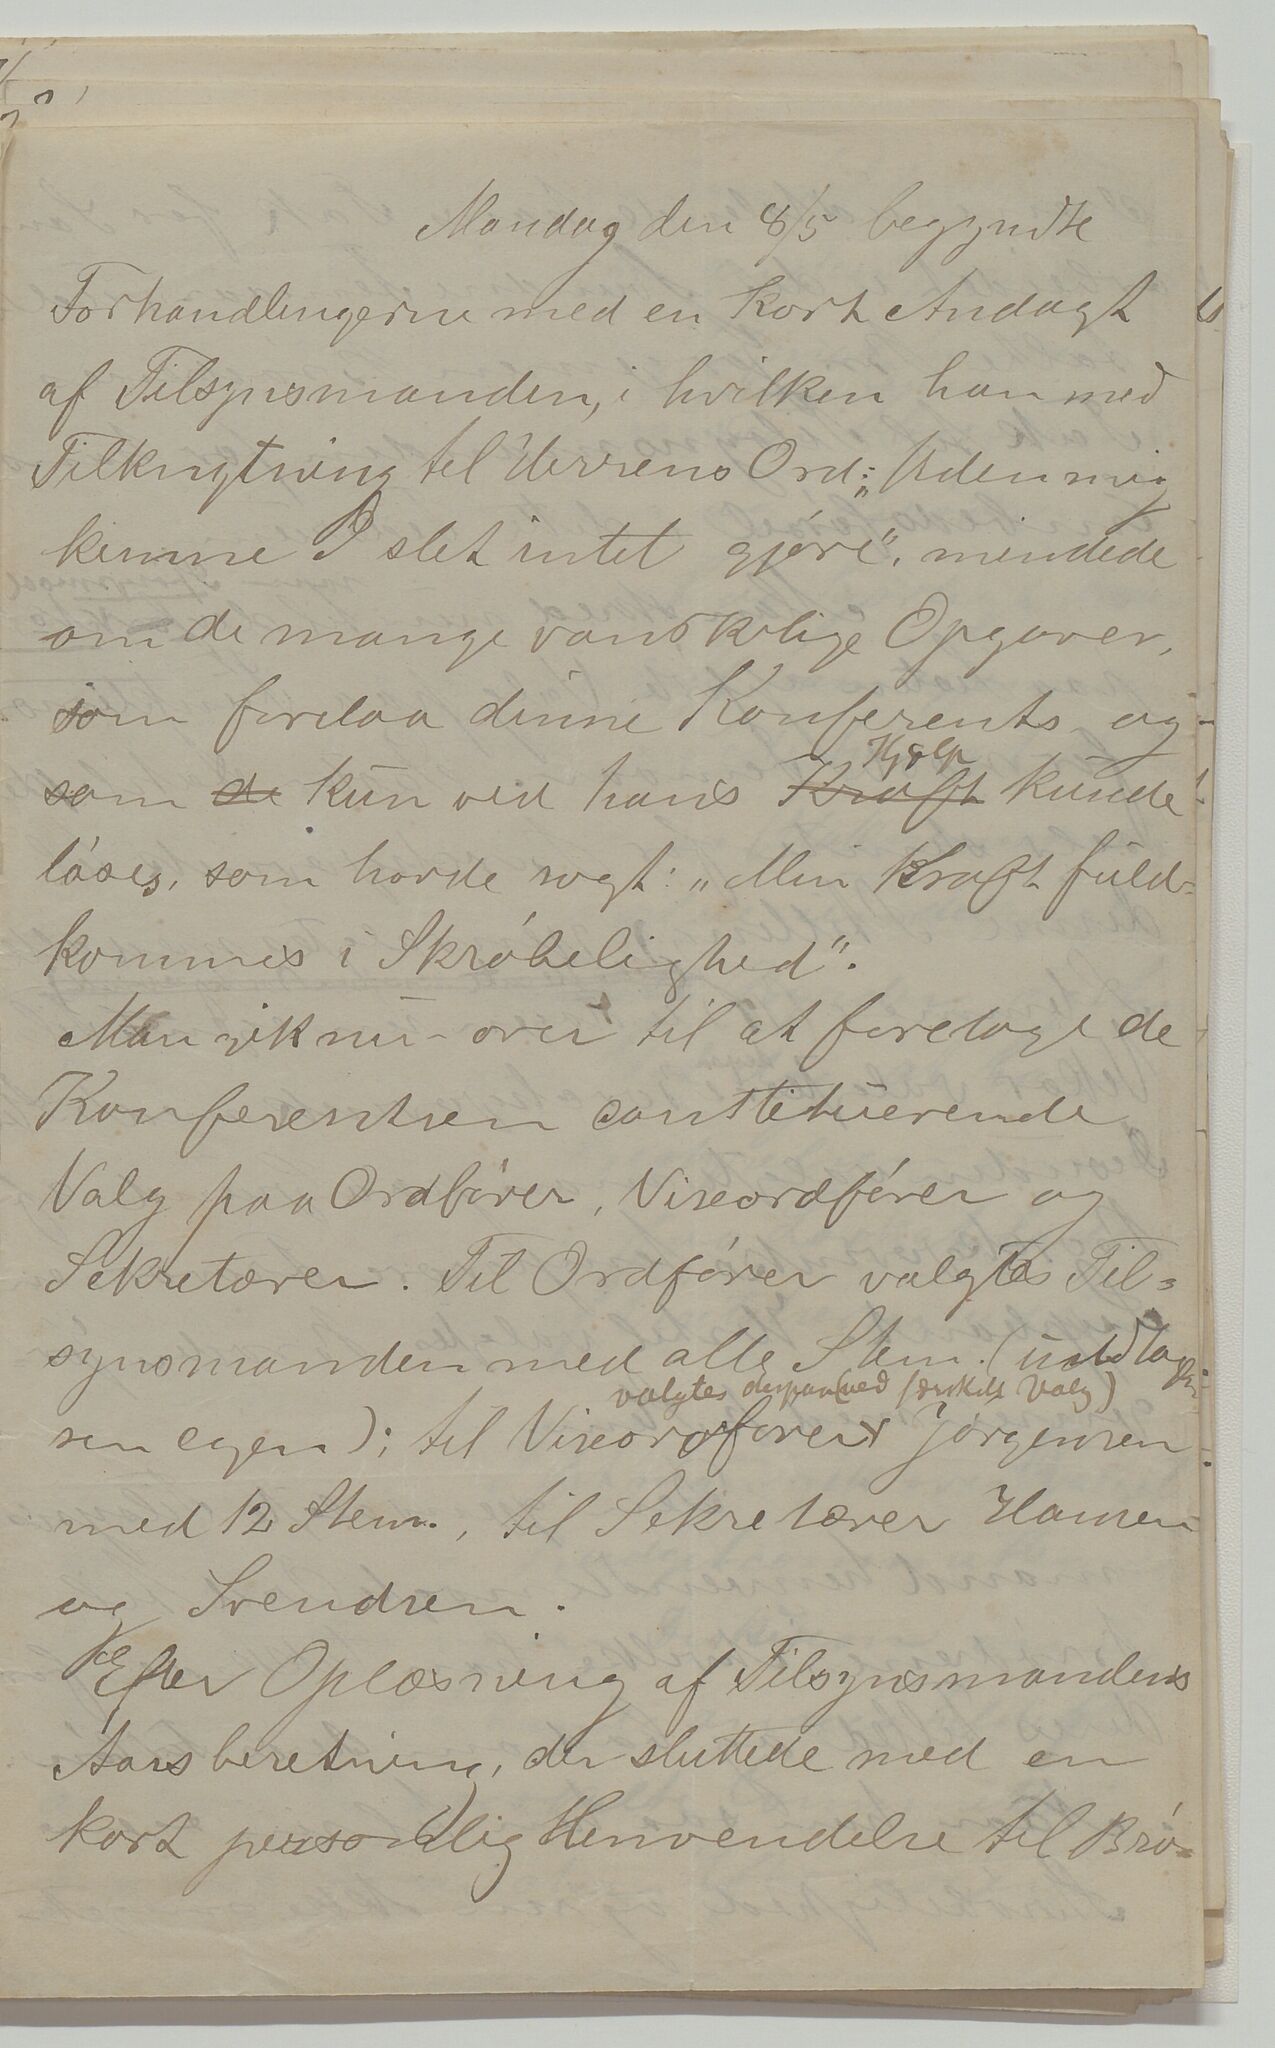 Mandag den 8/5 begyndte
Forhandlingerne med en kort Andagt
af Tilsynsmanden, i hvilken han med
Tilknytning til Herrens Ord: „Uden mig
kunne I slet intet gjøre", mindede
om de mange vanskelige Opgaver,
som forelaa denne Konferents og
som de kun ved hans Kraft Hjælp kunde
løses, som havde sagt: „Min Kraft fuld-
kommes i Skrøbelighed".
Man gik nu over til at foretage de
Konferentsen constituerende
Valg paa Ordfører, Viseordfører og
Sekretærer. Til Ordfører valgtes Til-
synsmanden med alle Stem. (undtagen
valgtes derpaa (ved særskilt Valg)
sin egen); til Viseordfører Jørgensen
med 12 Stem., til Sekretærer Hansen
og Svendsen.
Efter Oplæsning af Tilsynsmandens
Aarsberetning, der sluttede med en
kort personlig Henvendelse til Brø-